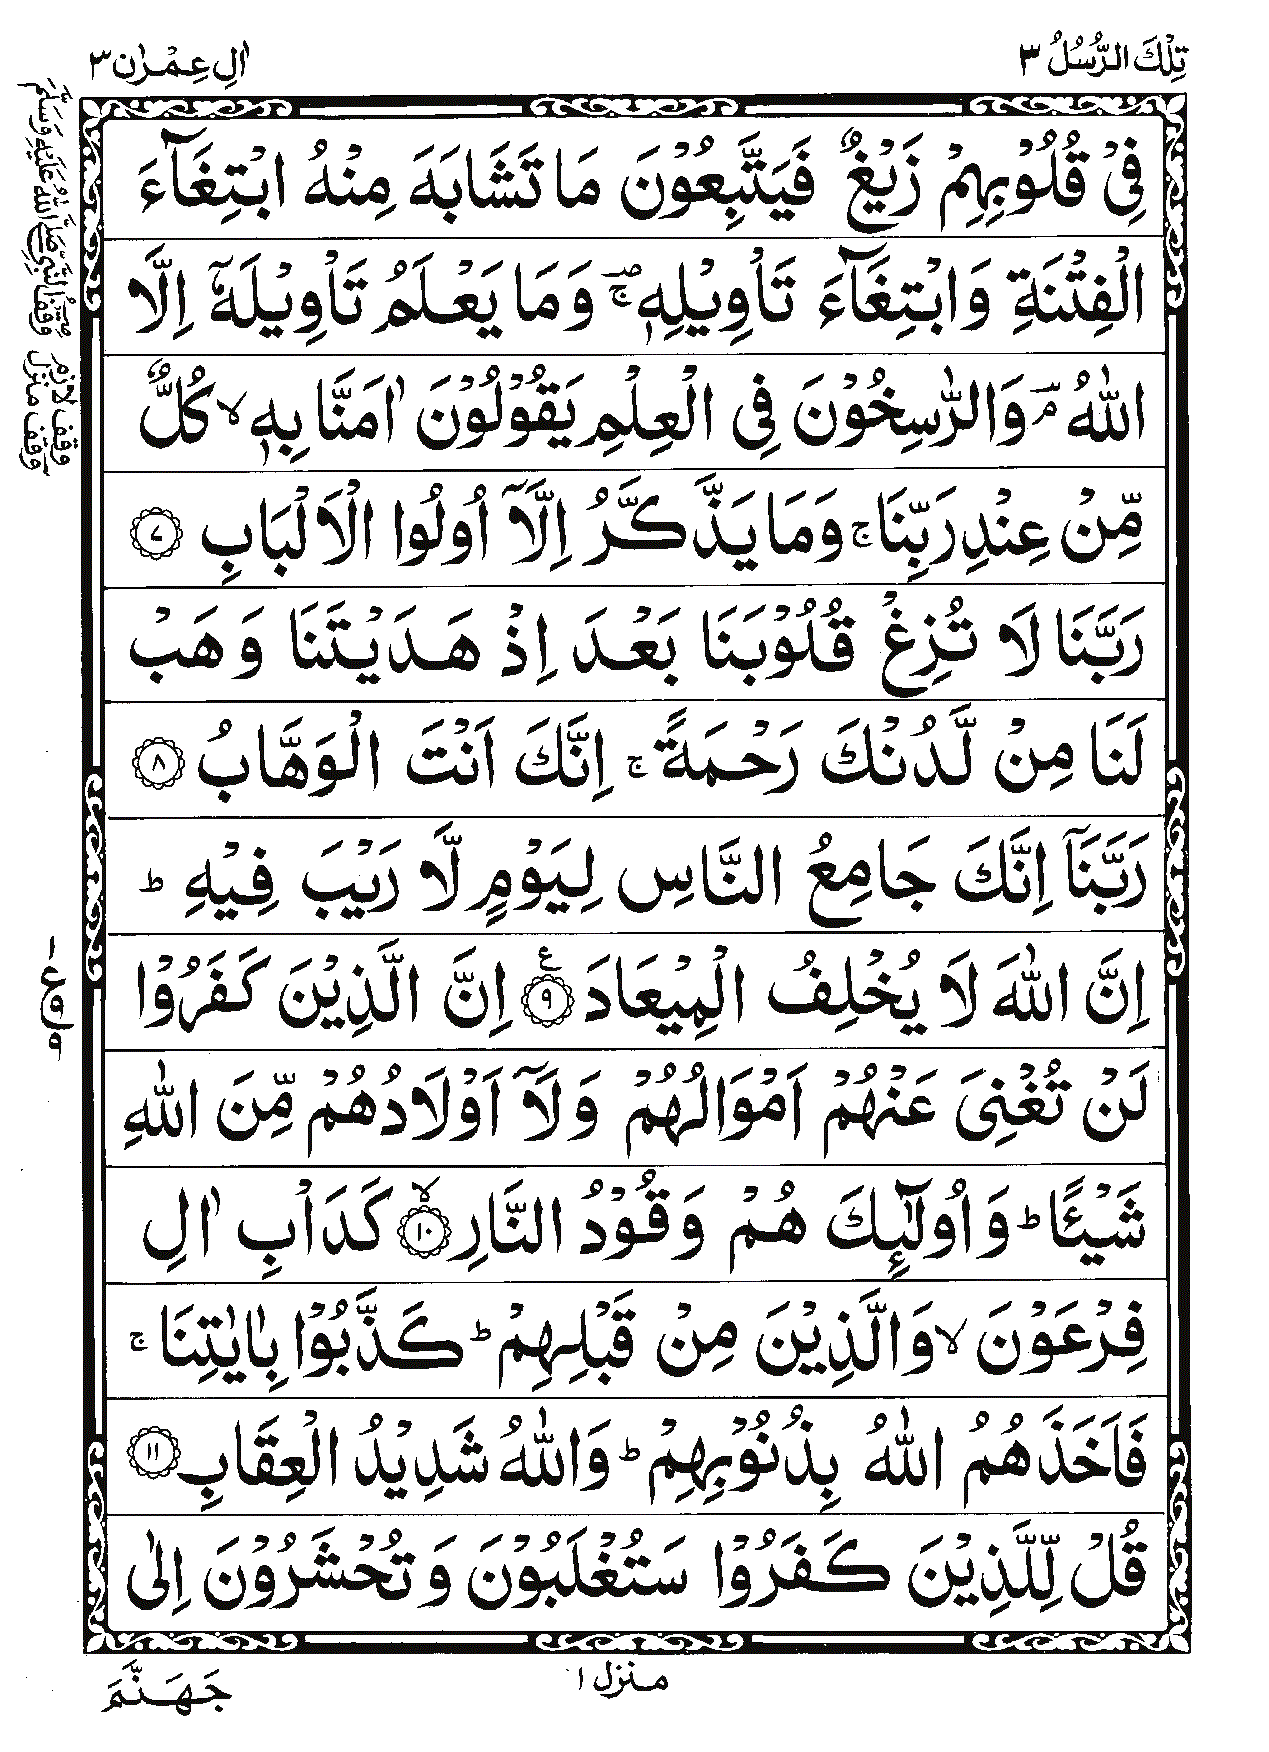 تِلْكَ الرُّسُلُ ٣
اٰلِ عِمْرٰن ٣
فِیْ قُلُوْبِهِمْ زَیْغٌ فَیَتَّبِعُوْنَ مَا تَشَابَهَ مِنْهُ ابْتِغَآءَ
الْفِتْنَةِ وَابْتِغَآءَ تَاْوِیْلِهٖ ۚ وَمَا یَعْلَمُ تَاْوِیْلَهٗۤ اِلَّا
اللّٰهُ ۘ وَالرّٰسِخُوْنَ فِی الْعِلْمِ یَقُوْلُوْنَ اٰمَنَّا بِهٖ ۙ كُلٌّ
مِّنْ عِنْدِ رَبِّنَا ۚ وَمَا یَذَّكَّرُ اِلَّاۤ اُولُوا الْاَلْبَابِ ﴿۷﴾
رَبَّنَا لَا تُزِغْ قُلُوْبَنَا بَعْدَ اِذْ هَدَیْتَنَا وَهَبْ
لَنَا مِنْ لَّدُنْكَ رَحْمَةً ۚ اِنَّكَ اَنْتَ الْوَهَّابُ ﴿۸﴾
رَبَّنَاۤ اِنَّكَ جَامِعُ النَّاسِ لِیَوْمٍ لَّا رَیْبَ فِیْهِ ؕ
اِنَّ اللّٰهَ لَا یُخْلِفُ الْمِیْعَادَ ﴿۹﴾ ع اِنَّ الَّذِیْنَ كَفَرُوْا
لَنْ تُغْنِیَ عَنْهُمْ اَمْوَالُهُمْ وَلَاۤ اَوْلَادُهُمْ مِّنَ اللّٰهِ
شَیْـًٔا ؕ وَاُولٰٓئِكَ هُمْ وَقُوْدُ النَّارِ ﴿۱۰﴾ ۙ كَدَاْبِ اٰلِ
فِرْعَوْنَ ۙ وَالَّذِیْنَ مِنْ قَبْلِهِمْ ؕ كَذَّبُوْا بِاٰیٰتِنَا ۚ
فَاَخَذَهُمُ اللّٰهُ بِذُنُوْبِهِمْ ؕ وَاللّٰهُ شَدِیْدُ الْعِقَابِ ﴿۱۱﴾
قُلْ لِّلَّذِیْنَ كَفَرُوْا سَتُغْلَبُوْنَ وَتُحْشَرُوْنَ اِلٰی
جَهَنَّمَ
منزل ۱
وقف النبی صلی اللہ علیہ وسلم
وقف لازم
وقف منزل